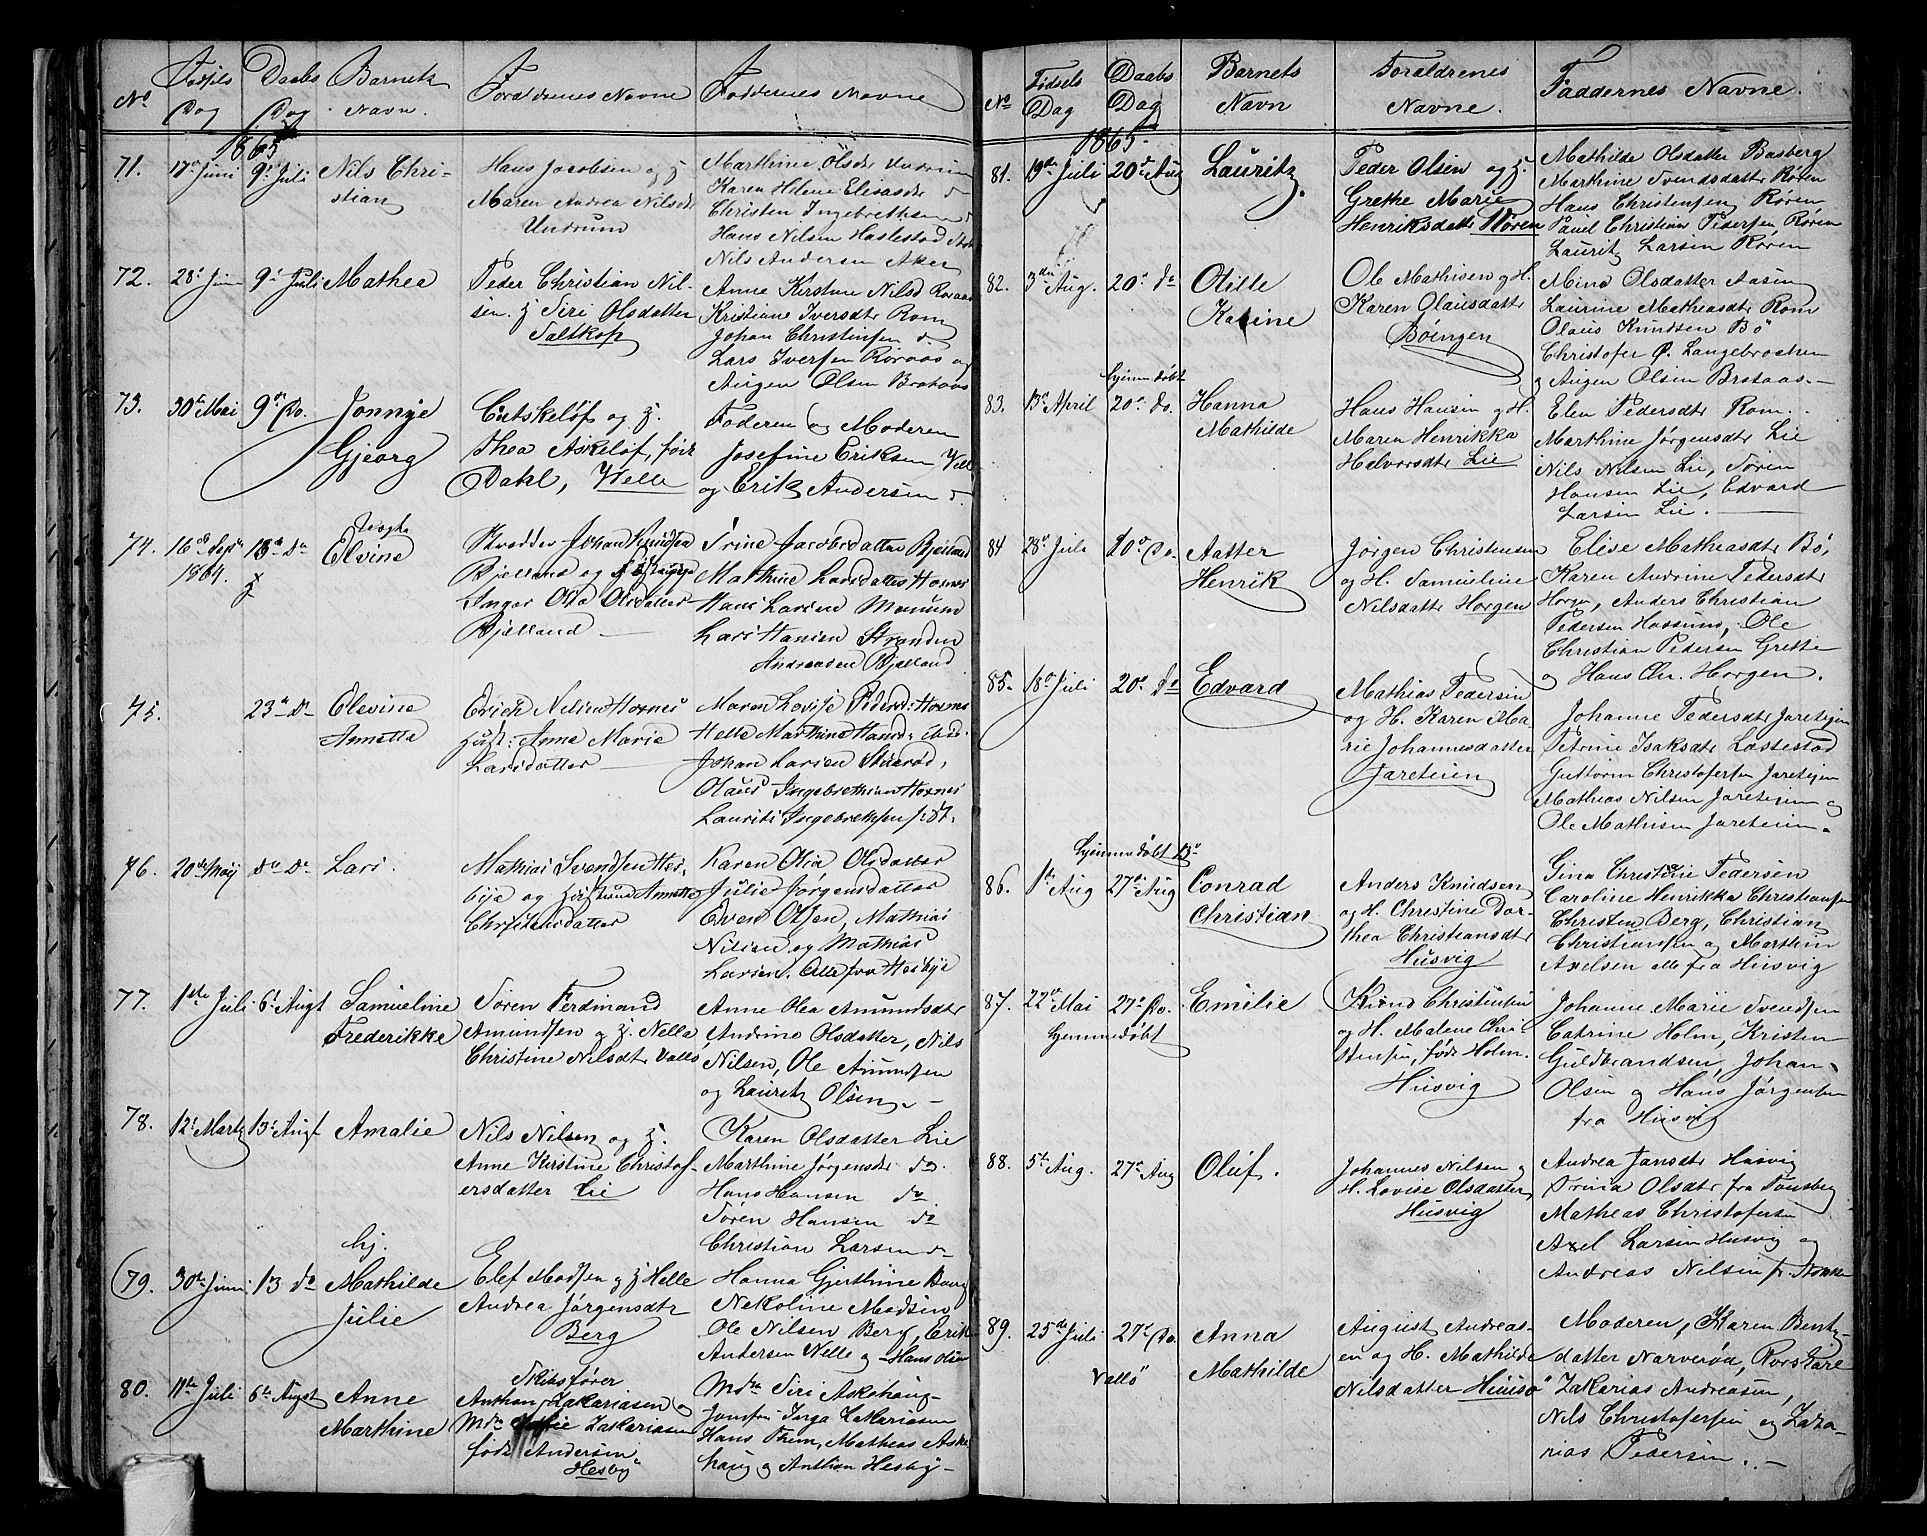 No
Fødsels
Dag
Daabs
Dag
Barnets
Navn.
Foraldrenes Navne
Faddernes Navne
1865
71.
17de Juni
9de Juli
Nils Chri-
stian
Hans Jacobsen og H.
Maren Andrea Nilsdtr
Undrum
Marthine Olsdtr Undrum
Karen Helene Eliasdtr do
Christen Ingebrethsen do
Hans Nilsen Haslestad
Nils Andersen Aker
72.
28de Juni
9de Juli
Mathea
Peder Christian Nil-
sen. H. Siri Olsdatter
Saltkop
Anne Kirstine Nilsd Roraas
Kristiane Iversdtr Rom
Johan Christensen do
Lars Iversen Roraas og
Augen Olsen Brataas
73.
30te Mai
9de Do.
Jonnye
Gjeorg
Cutskelöf og H.
Thea Askelöf, född
Dahl, Welle
Faderen og Moderen
Josefine Eriksen Vell
og Erik Andersen do
74.
16de Sept
1864.
13de do
Elvine
Johan Knudsen
Bjelland og Hustrue
Inger Olea Olsdatter
Bjelland
Trine Jacobsdatter Bjelland
Mathine Larsdatter Hoxnes
Hans Larsen
Lars Hansen Stranden
Andreasen Bjelland
75.
23de do
Elevine
Annetta
Erich Nilsen Hoxnes
Hust: Anne Marie
Larsdatter
Maren Lovise Pedersd: Hoxnes
Helle Marthine Hansd: ibid.
Johan Larsen Skiærød,
Olaus Ingebrethsen Hoxnes
Laurits Ingebrethsen
76.
20de May
do do
Lars.
Mathias Svendsen Hes-
bye og Hustrue Annette
Christensdatter
Karen Olea Olsdatter
Julie Jörgensdatter
Even Olsen, Mathias
Nilsen og Mathias
Larsen. Alle fra Hesbye
77.
1ste Juli
6te Augt
Samueline
Frederikke
Sören Ferdinand
Amundsen og H. Nella
Christine Nilsdtr Vallø
Anne Olea Amundsdtr
Andrine Olsdatter, Nils
Nilsen, Ole Amundsen
og Lauritz Olsen. —
78.
12te Martz
13de Augt
Amalie
Nils Nilsen og H.
Anne Kirstine Christof-
ersdatter Lie
Karen Olsdatter Lie
Marthine Jørgensdtr do.
Hans Hansen do
Sören Hansen do
Christian Larsen do
79.
30te Juni
13 do
hj.
Mathilde
Julie
Elef Madsen og H Helle
Andrea Jørgensdtr
Berg
Hanna Gjerthine Berg
Nekoline Madsen
Ole Nilsen Berg, Erik
Andersen Nelle og Hans Olsen
80.
11te Juli
6te Augst
Anne
Marthine
Skibsfører
Anthon Zakariasen og
Mde Zakariasen
født Andersen
Hesby
Mde Siri Askehaug
Jomfru Inga Zakariasen
Hans Trem, Mathias Aske-
haug og Anthon Hesby —
No
Fødsels
Dag
Daabs
Dag
Barnets
Navn
Foraldrenes
Navne.
Faddernes Navne.
1865.
81.
19de Juli
20de Aug
Lauritz.
Peder Olsen og H.
Grethe Marie
Henriksdatter Røren
Mathilde Olsdatter Basberg
Marthine Svendsdatter Røren
Hans Christensen Røren
Paul Christian Pedersen Røren
Lauritz Larsen Røren
82.
3die Aug.
20de do
Otille
Karine
Ole Mathisen og H.
Karen Olausdatter
Böengen
Mina Olsdatter Aasen
Laurine Matheasdtr Rom
Olaus Knudsen Bö
Christofer P. Langebrochen
og Augen Olsen Brataas. —
83.
13de April
hjemmedöbt
20de do.
Hanna
Mathilde
Hans Hansen og H.
Maren Henrikka
Halvorsdtr Lie
Elen Pedersdtr Rom.
Marthine Jørgensdtr Lie
Nils Nilsen Lie, Søren
Hansen Lie, Edvard
Larsen Lie.
84
28de Juli
20de Do.
Aatter
Henrik
Jörgen Christensen
og H. Samueline
Nilsdatter Horgen
Elise Matheasdtr Bö,
Karen Andrine Pedersdtr
Horgen, Anders Christian
Pedersen Hassum, Ole
Christian Pedersen Grette
og Hans Chr. Horgen.
85.
18de Juli
20de do
Edvard
Mathias Pedersen
og H. Karen Ma-
rie Johannesdatter
Jareteien
Johanne Pedersdtr Jareteien
Petrine Isaksdtr Lastestad
Guttorm Christofersen Jareteien
Mathias Nilsen Jareteien og
Ole Mathisen Jareteien.
86.
1ste Aug
hjemmedöbt 13de
27de Aug
Conrad
Christian
Anders Knudsen
og H. Christine Dor-
thea Christiansdtr
Husvig
Gina Christine Pedersen
Caroline Henrikka Christiansen
Christen Berg, Christian
Christiansen og Marthin
Axelsen alle fra Husvig
87.
22de Mai
27de Do.
hjemmedöbt
Emilie
Knud Christensen
og H. Malene Chri-
stensen, född Holm.
Husvig
Johanne Marie Svendsen
Catrine Holm, Kristen
Guldbrandsen, Johan
Olsen og Hans Jørgensen
fra Husvig
88.
5te Aug.
27de Aug
Oluf.
Johannes Nilsen og
H. Lovise Olsdatter
Husvig
Andrea Jansdtr Husvig
Trina Olsdtr fra Tønsberg
Matheas Christofersen
Axel Larsen Husvig og
Andreas Nilsen fr. Nøkke
89.
25de Juli
27de Do.
Vallö
Anna
Mathilde
August Andreas-
en og H. Mathilde
Nilsdatter Huusø
Moderen, Karen Bents-
datter Narverød, Korsfare
Zakarias Andreasen,
Nils Christofersen og Zaka-
rias Pedersen. —